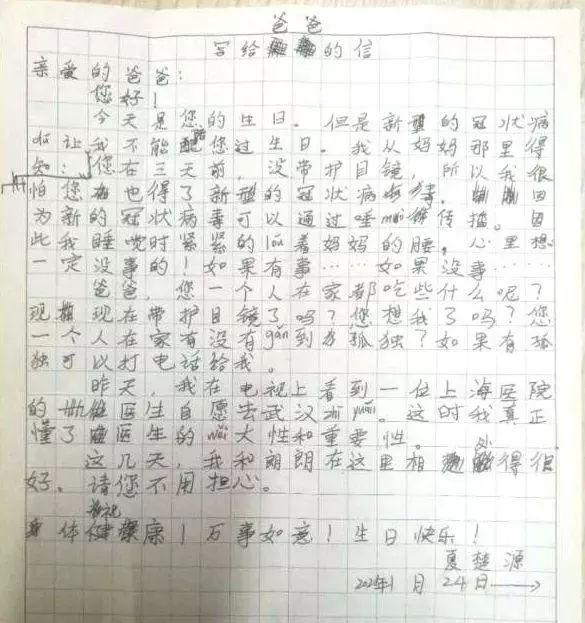 爸爸
写给的信
亲爱的爸爸:
您好!
今天是您的生日。但是新型的冠状病
dú让我不能陪您过生日。我从妈妈那里得
知:您在三天前,没带护目镜,所以我很
怕您也得了新型的冠状病毒。因
为新的冠状病毒可以通过唾传播。因
此我睡觉时紧紧的lōu着妈妈的腰,心里想
一定没事的!如果有事……如果没事……
爸爸,您一个人在家都吃些什么呢?
现现在带护目镜了吗?您想我了吗?您
一个人在家有没有gǎn到孤独?如果有孤
独可以打电话给我。
昨天,我在电视上看到一位上海医院
的医生自愿去武汉yuán。这时我真正
懂了医生的wěi大性和重要性。
这几天,我和朗朗在这里相处得很
好。请您不用担心。
祝
身体健康!万事如意!生日快乐!
夏楚源
1月24日